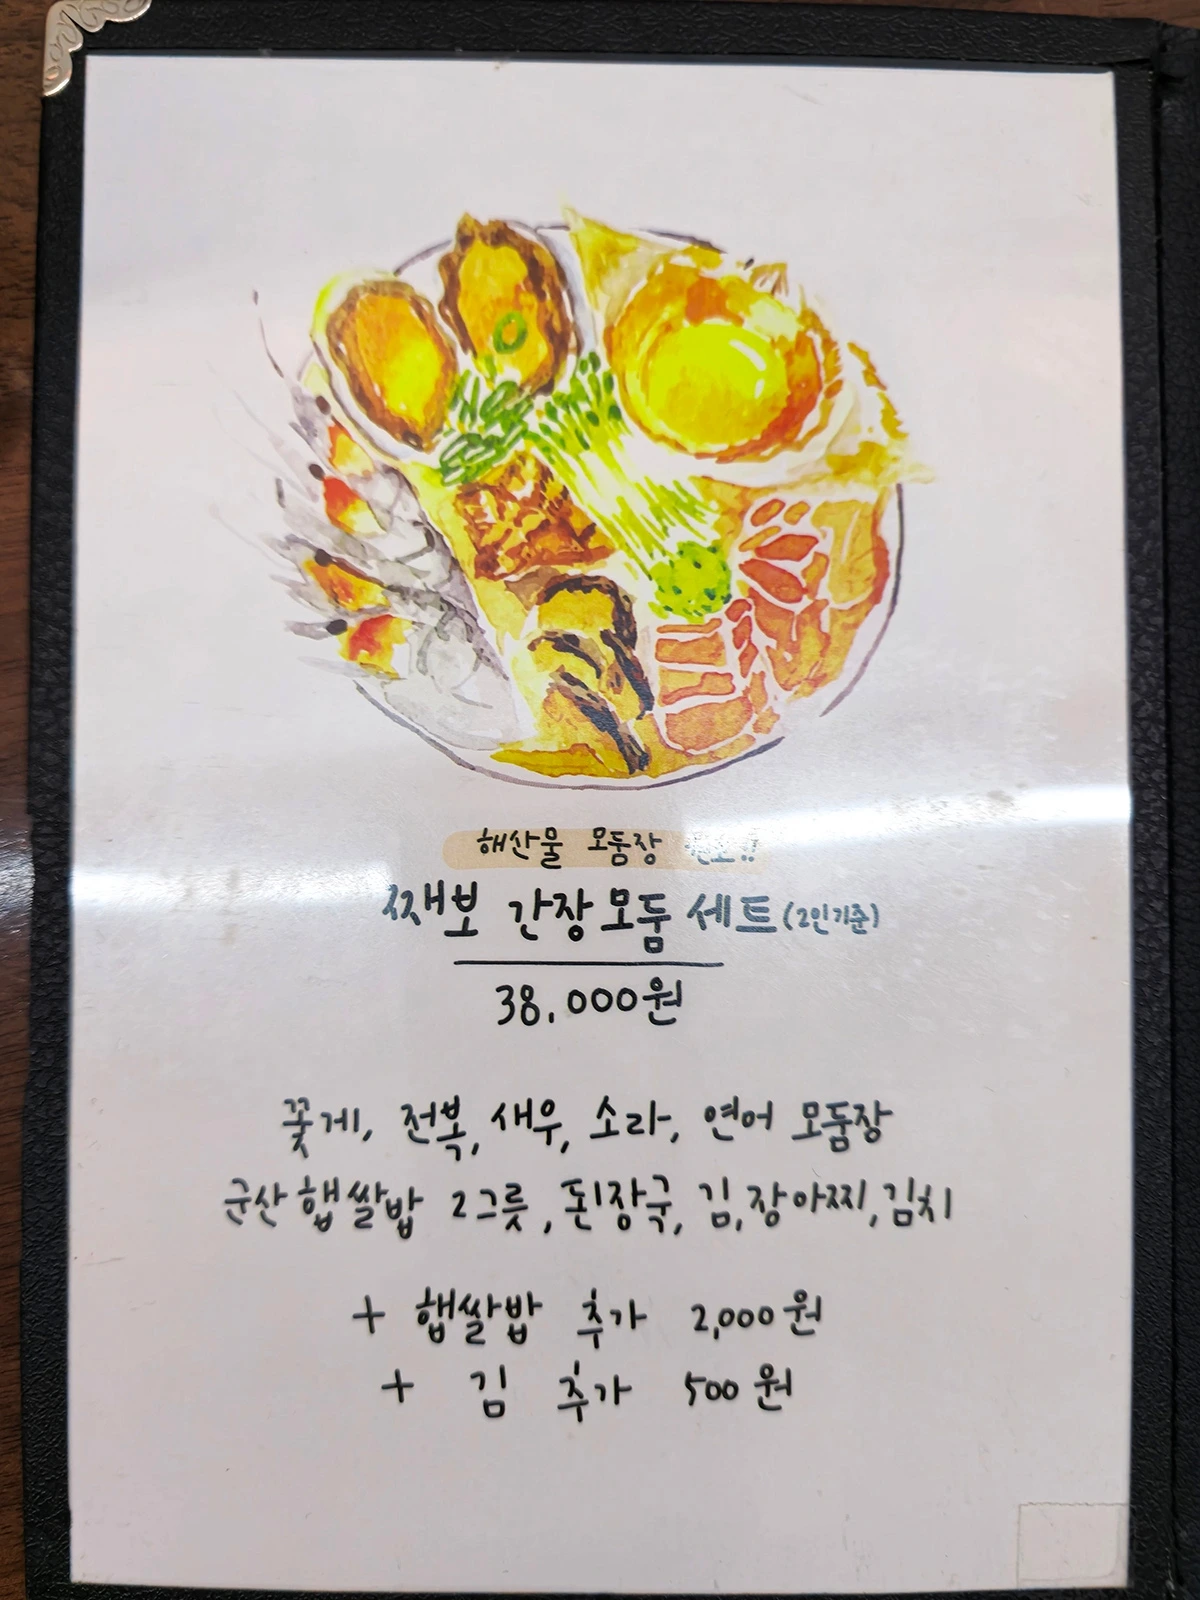 해산물 모둠장
째보 간장모둠 세트(2인기준)
38.000원
꽃게, 전복, 새우, 소라, 연어 모둠장
군산햅쌀밥 2그릇, 된장국, 김, 장아찌, 김치
+ 햅쌀밥 추가 2,000원
+ 김 추가 500원